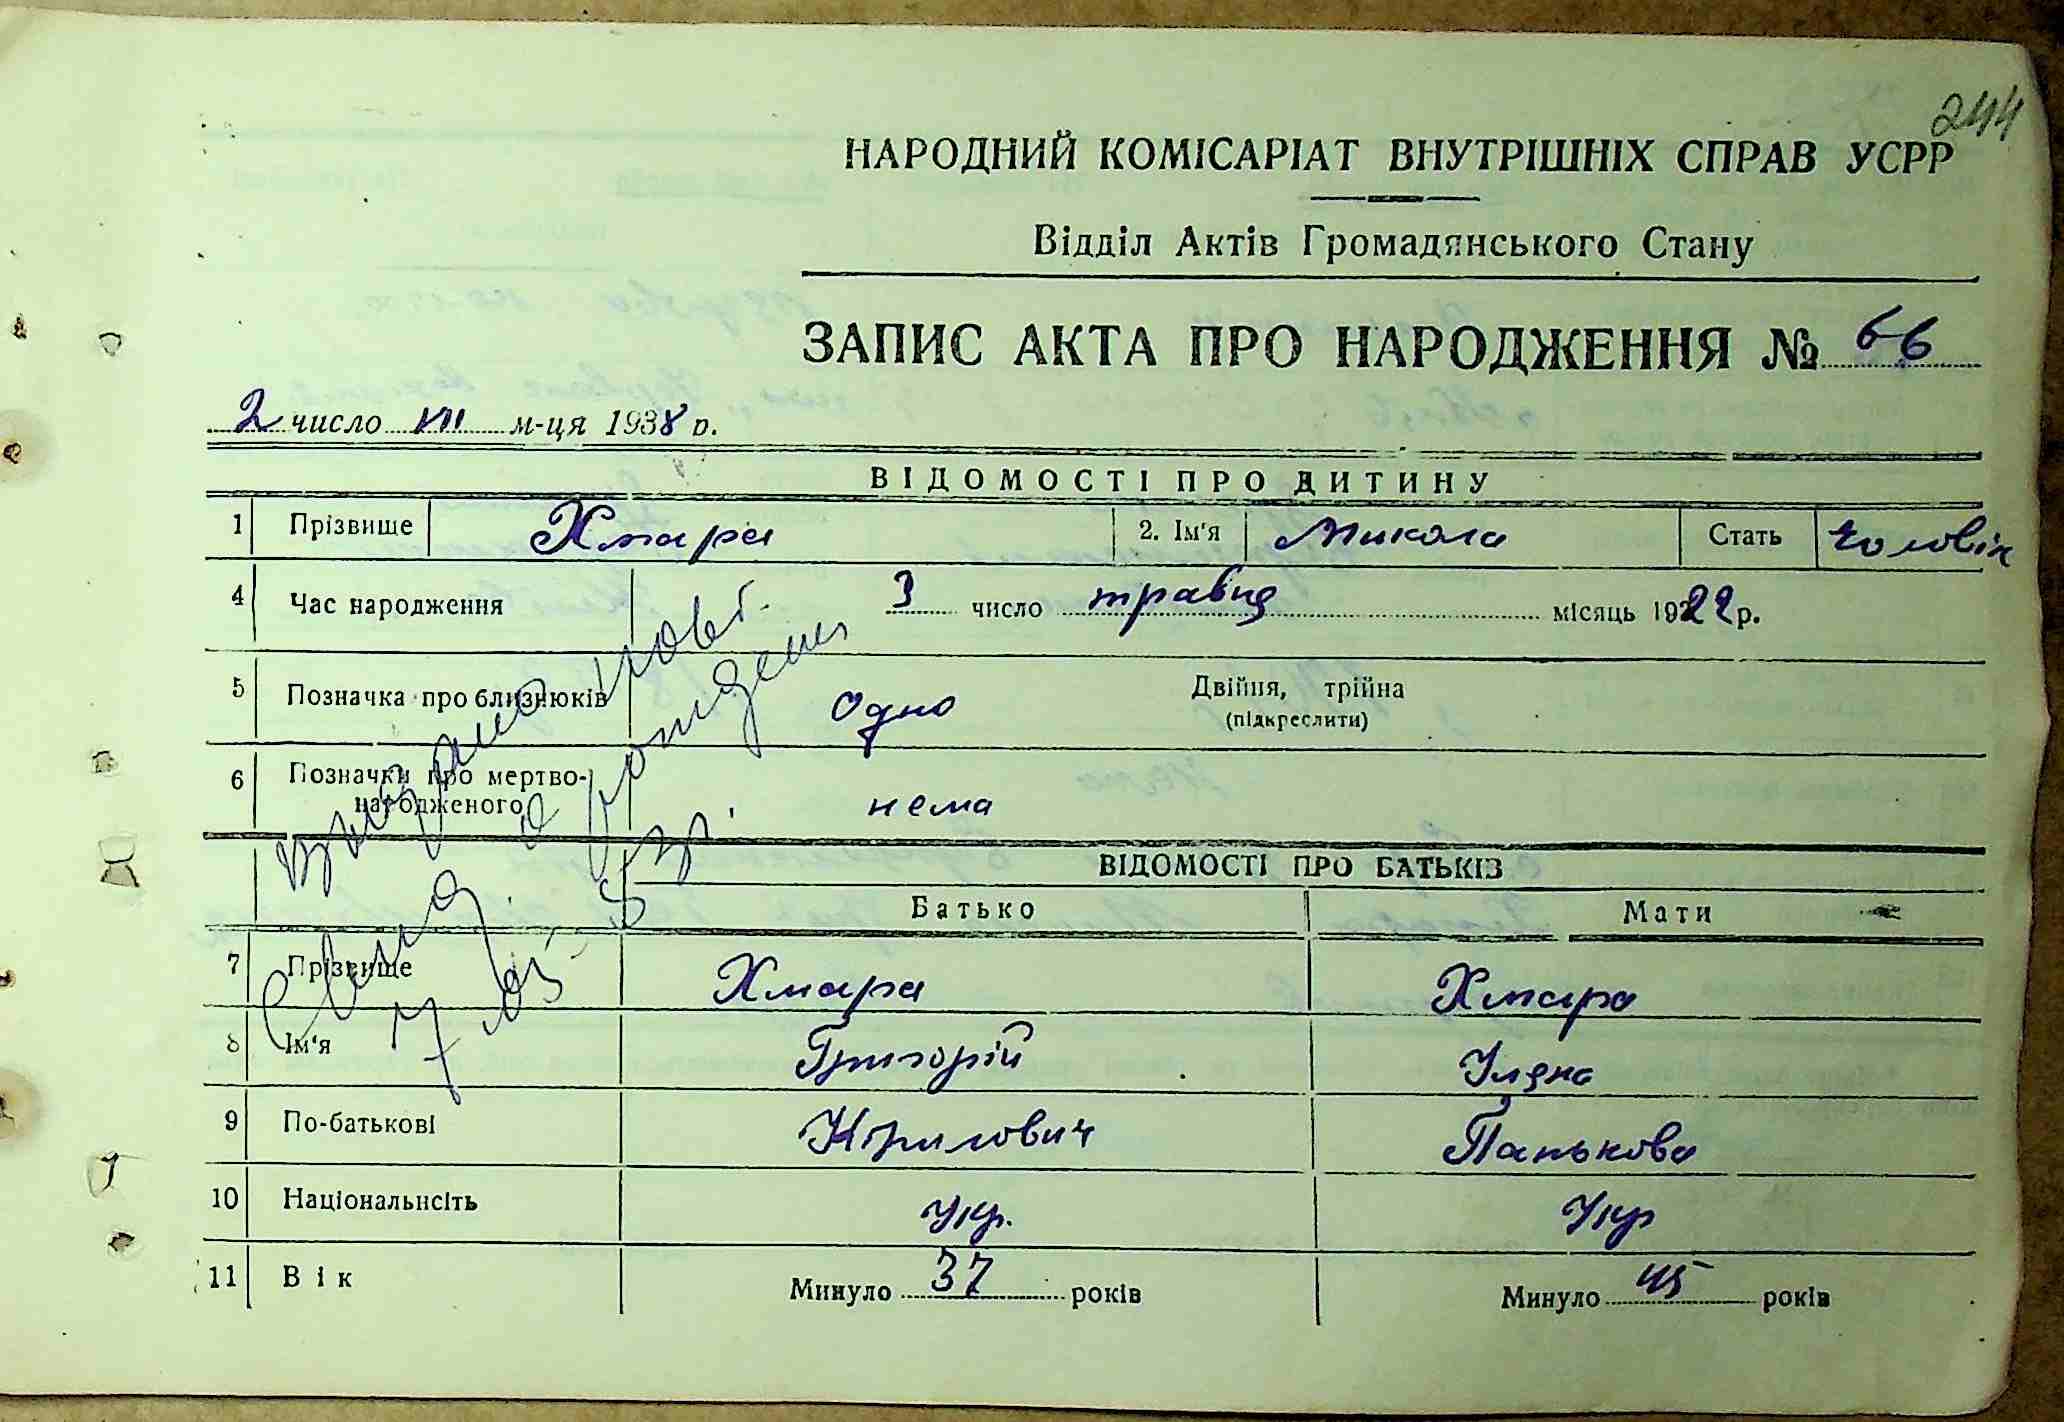 244
НАРОДНИЙ КОМІСАРІАТ ВНУТРІШНІХ СПРАВ УСРР
Відділ Актів Громадянського Стану
ЗАПИС АКТА ПРО НАРОДЖЕННЯ № 66
2 число VIII м-ця 1938 р.
ВІДОМОСТІ ПРО ДИТИНУ
1 Прізвище Хмара 2. Ім'я Микола Стать чоловік
4 Час народження 3 число травня місяць 1922 р.
5 Позначка про близнюків одно Двійня, трійна
(підкреслити)
6 Позначки про мертво-
народженого нема
ВІДОМОСТІ ПРО БАТЬКІВ
Батько Мати
7 Прізвище Хмара Хмара
8 Ім'я Григорій Уляна
9 По-батькові Кірилович Панькова
10 Національність Укр. Укр
11 Вік Минуло 37 років Минуло 45 років